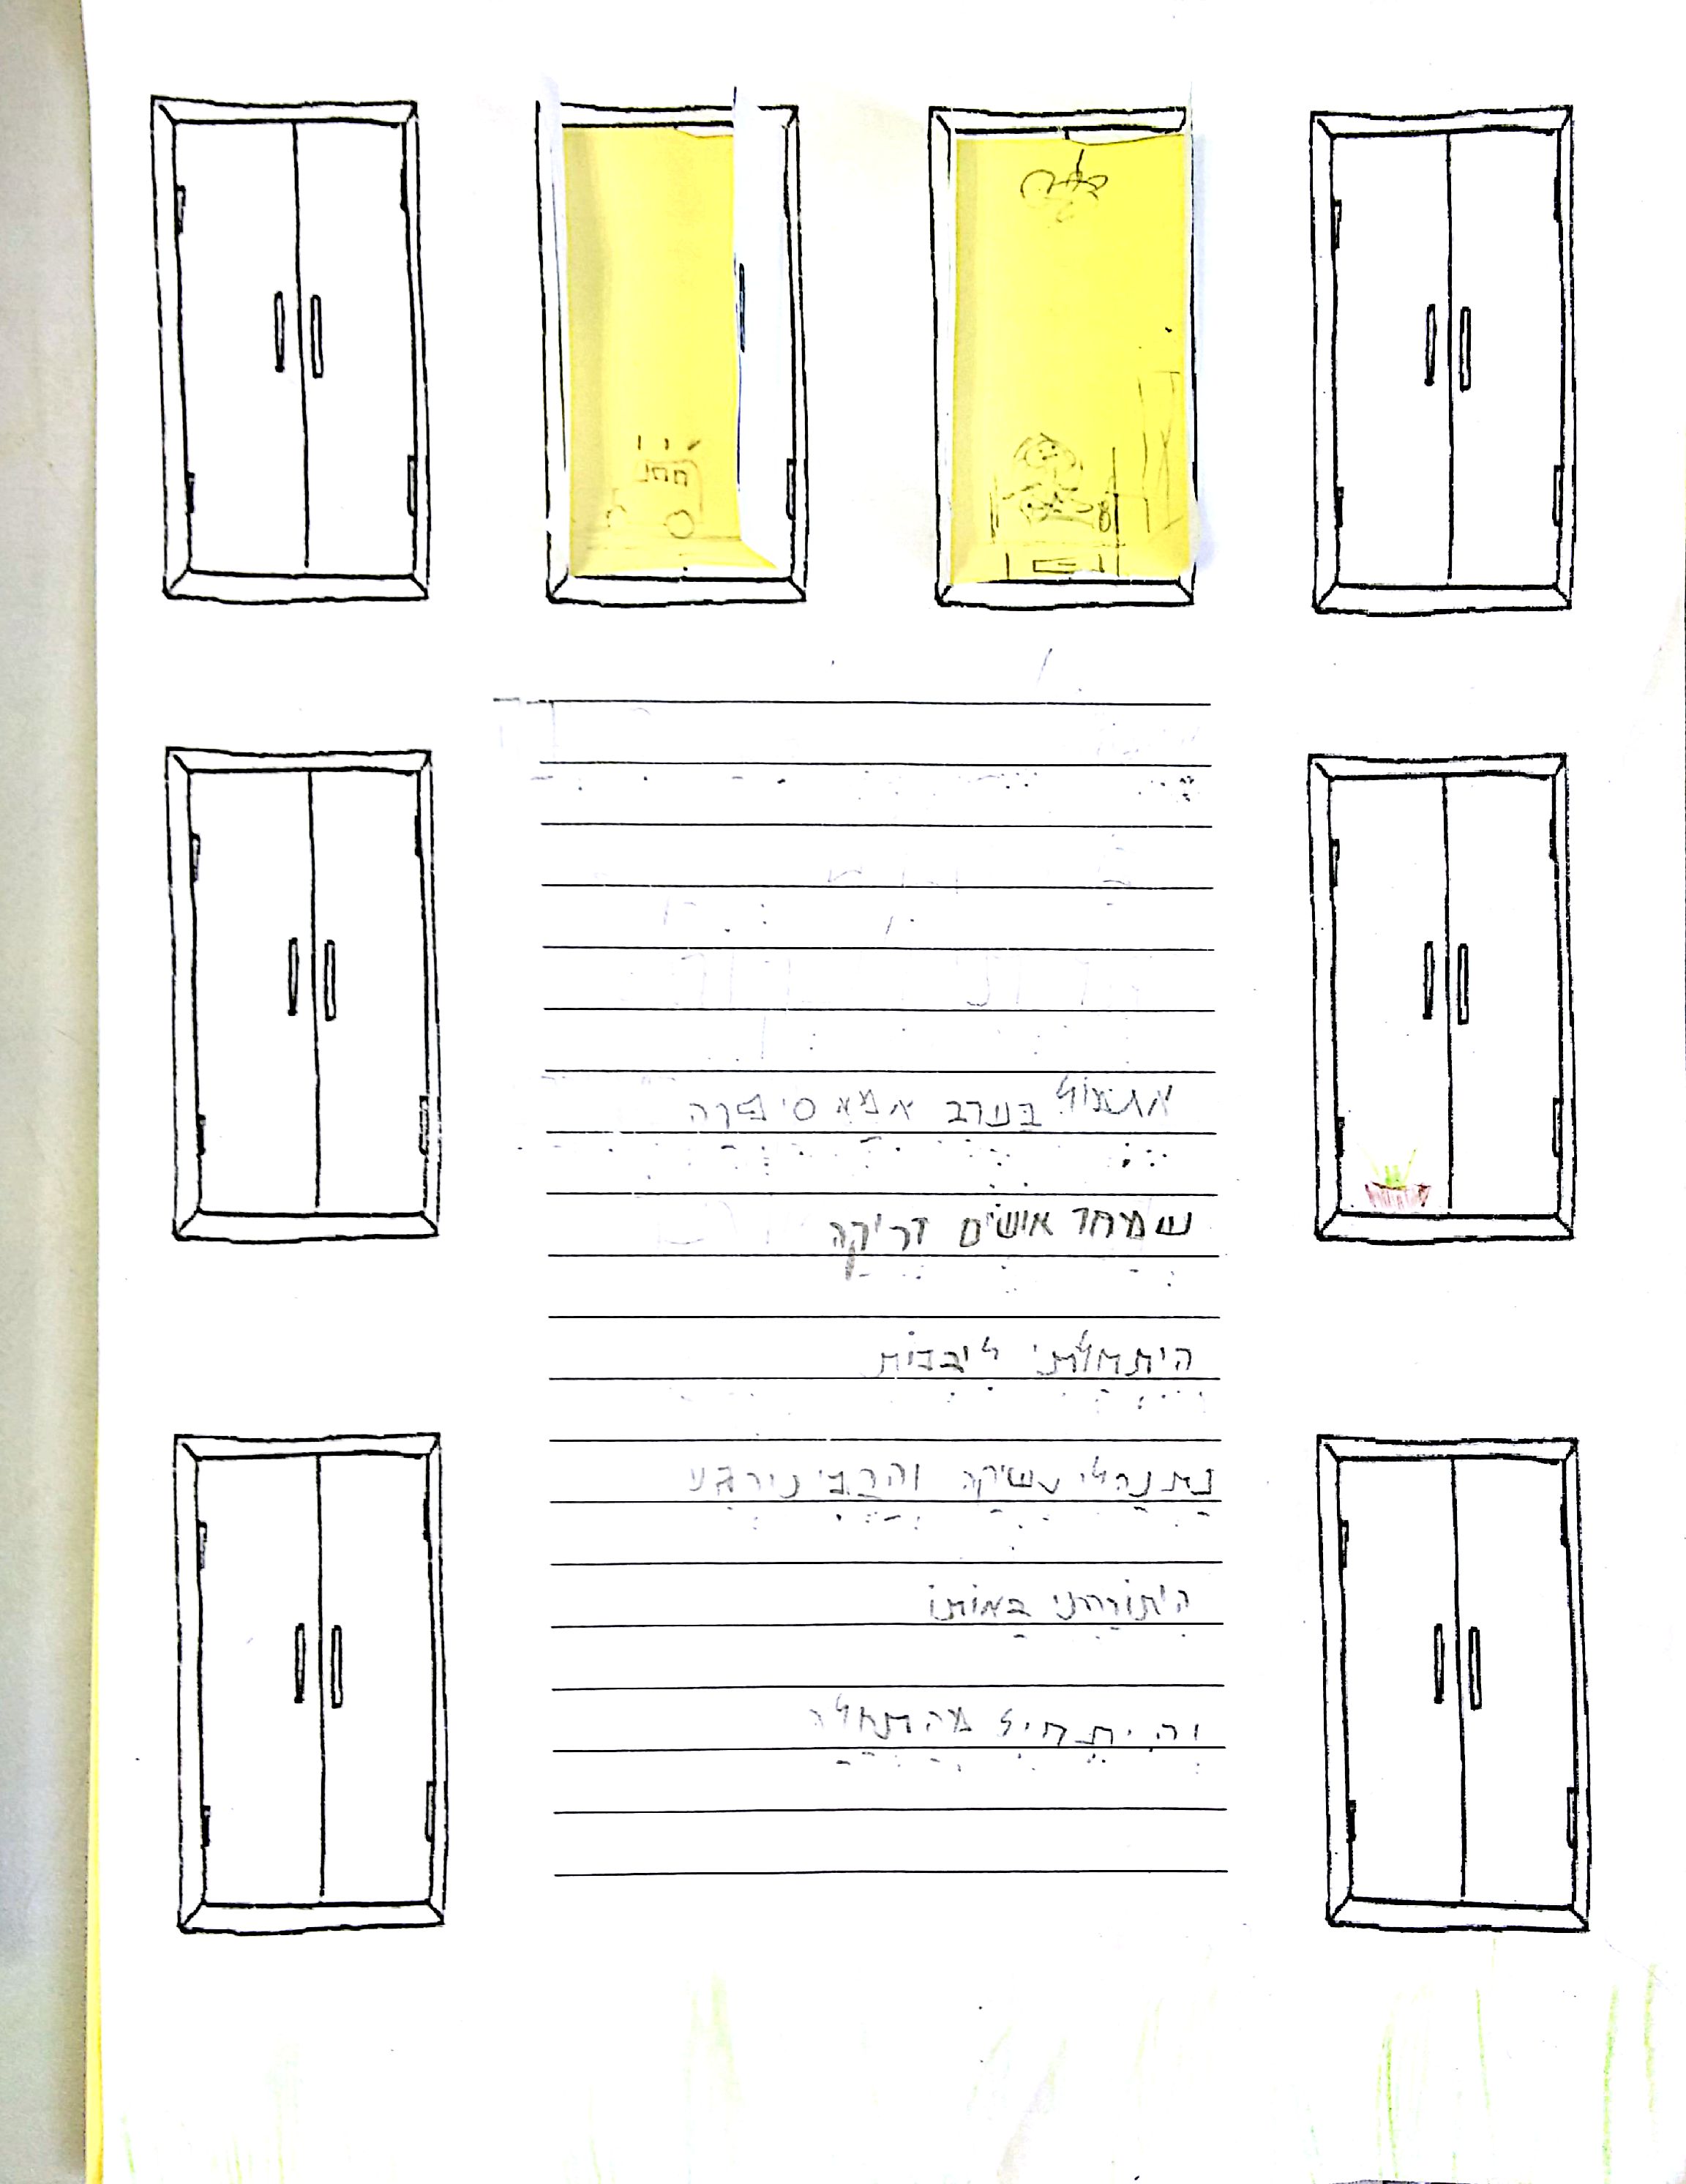 אתמול בערב אמא סיפרה
שמחר אושים דריקה
היתחלתי ליבכות
נתנה לי נשיקה והרבי נירגע
היתורהתי באותו
והיתחיל מהתחלה